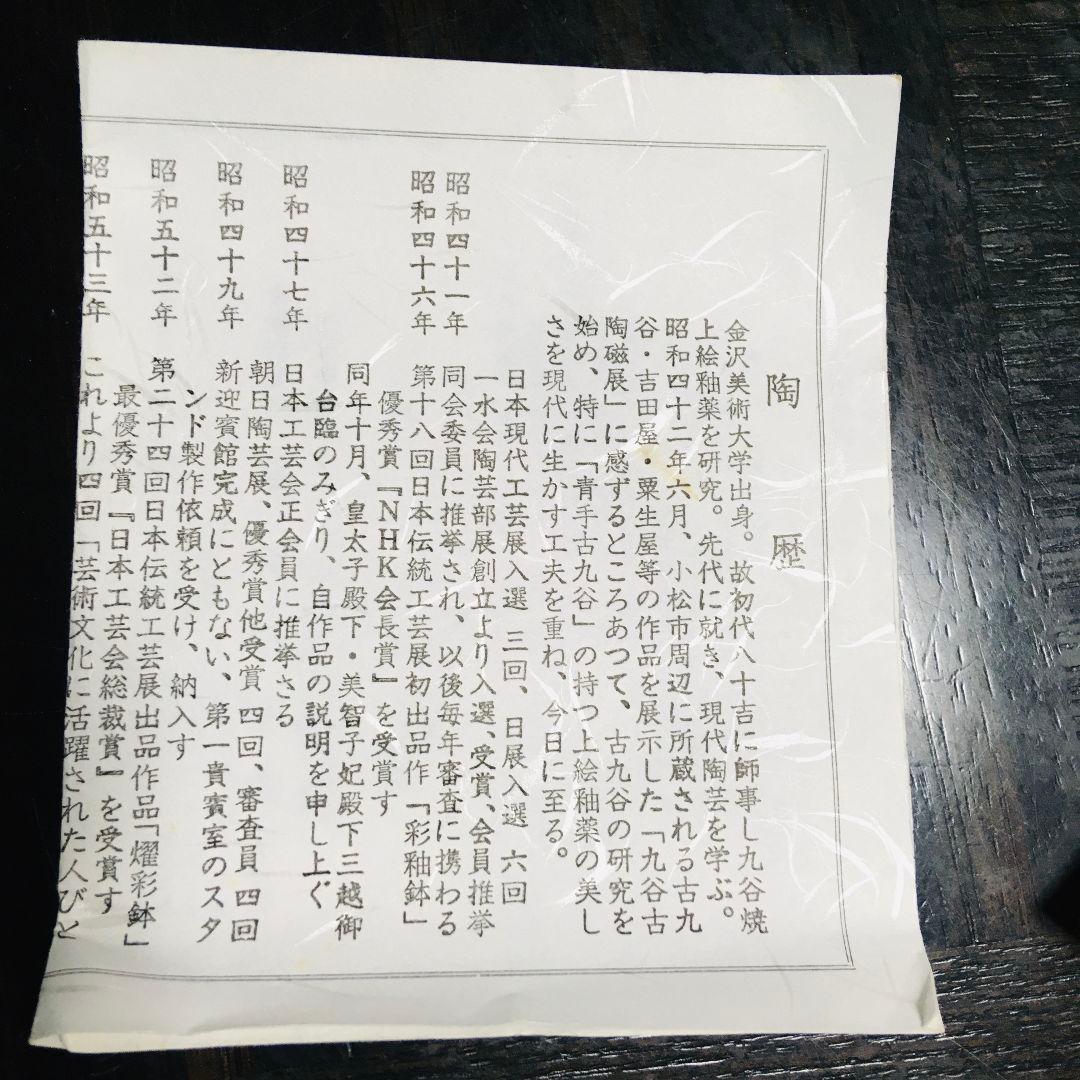 陶歴
金沢美術大学出身。故初代八十吉に師事し九谷焼
上絵釉薬を研究。先代に就き、現代陶芸を学ぶ。
昭和四十二年六月、小松市周辺に所蔵される古九
谷・吉田屋・粟生屋等の作品を展示した「九谷古
陶磁展」に感ずるところあつて、古九谷の研究を
始め、特に「青手古九谷」の持つ上絵釉薬の美し
さを現代に生かす工夫を重ね、今日に至る。
日本現代工芸展入選 三回、日展入選 六回
一水会陶芸部展創立より入選、受賞、会員推挙
昭和四十一年 同会委員に推挙され、以後毎年審査に携わる
昭和四十六年 第十八回日本伝統工芸展初出品作「彩釉鉢」
優秀賞『NHK会長賞』を受賞す
同年十月、皇太子殿下・美智子妃殿下三越御
台臨のみぎり、自作品の説明を申し上ぐ
昭和四十七年 日本工芸会正会員に推挙さる
朝日陶芸展、優秀賞他受賞 四回、審査員 四回
昭和四十九年 新迎賓館完成にともない、第一貴賓室のスタ
ンド製作依頼を受け、納入す
昭和五十二年 第二十四回日本伝統工芸展出品作品「燿彩鉢」
最優秀賞『日本工芸会総裁賞』を受賞す
昭和五十三年 これより四回「芸術文化に活躍された人びと